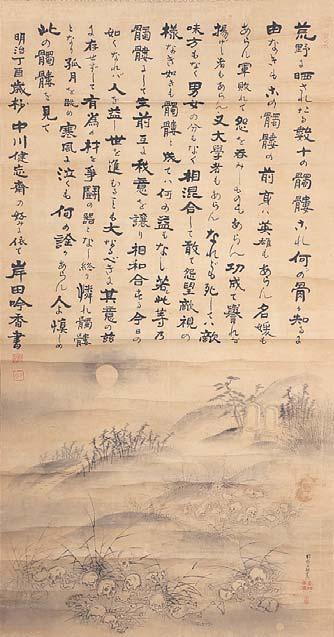 荒野に晒されたる数十の髑髏これ何の骨か知るに
由なきもこの髑髏の前身ハ英雄もあらん名媛も
あらん軍敗れて怨を呑みしものもあらん功成て誉れを
揚げし者もあらん又大学者もあらんなれども死しては敵
味方もなく男女の分ちもなく相混合して敢て怨望敵視の
様なき如きも髑髏に成ての何の益もなし若此等乃
髑髏にして生前互に我意を譲り相和合せる今日の
如くなれバ人を益し世を進むることも大なるべきに其意の
に存せずして有為の材を争闘の器となし終に憐れ髑髏
となり孤月を眺め寒風に泣くも何の詮かあらん人よ慎しめ
此の髑髏を見て
明治丁酉歳杪中川健忘斎の好に依て
岸田吟香書